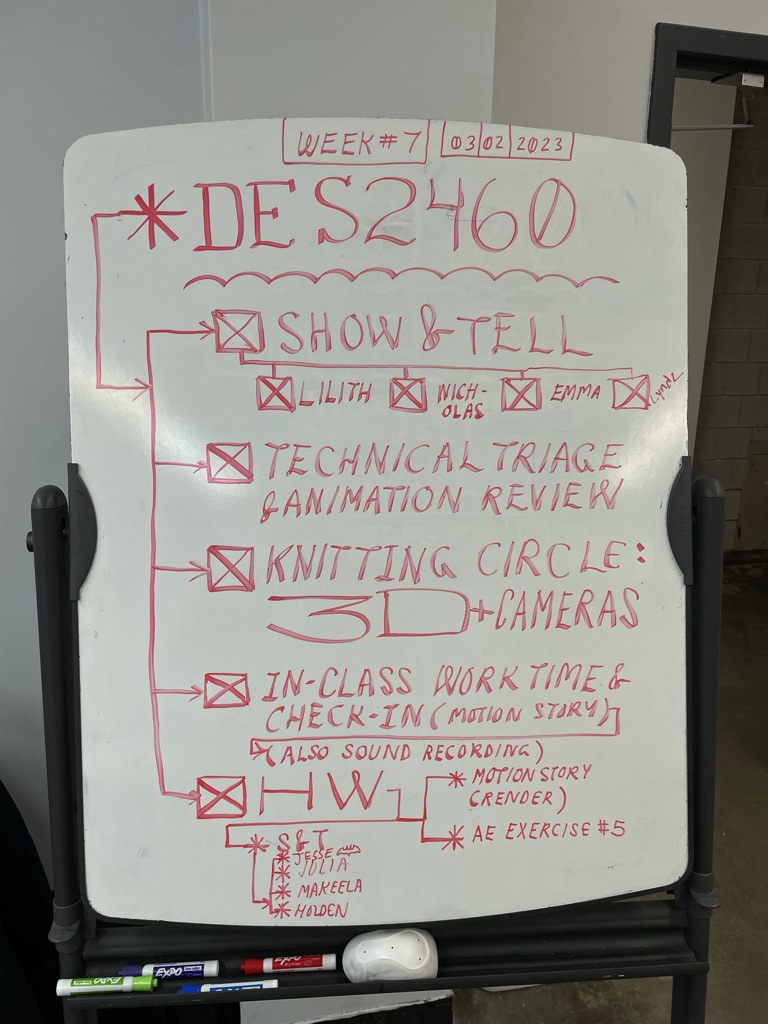 WEEK #7 03 02 2023
* DES2460
SHOW & TELL
LILITH NICH- EMMA Lyndz
OLAS
TECHNICAL TRIAGE
& ANIMATION REVIEW
KNITTING CIRCLE:
3D + CAMERAS
IN-CLASS WORK TIME &
CHECK-IN (MOTION STORY)
(ALSO SOUND RECORDING)
HW
* MOTION STORY
(RENDER)
* AE EXERCISE #5
* S&T
* JESSE
* JULIA
* MAKEELA
* HOLDEN
EXPO
EXPO
EXPO